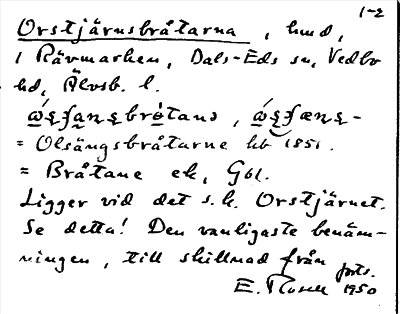 1-2
Orstjärnsbråtarna, hmd,
i Rävmarken, Dals-Eds sn, Vedbo
hd, Älvsb. l.
= Olsängsbråtarne hb 1851.
= Bråtane ek, Gbl.
Ligger vid det s.k. Orstjärnet.
Se detta! Den vanligaste benäm-
ningen, till skillnad från forts.
E. 1950